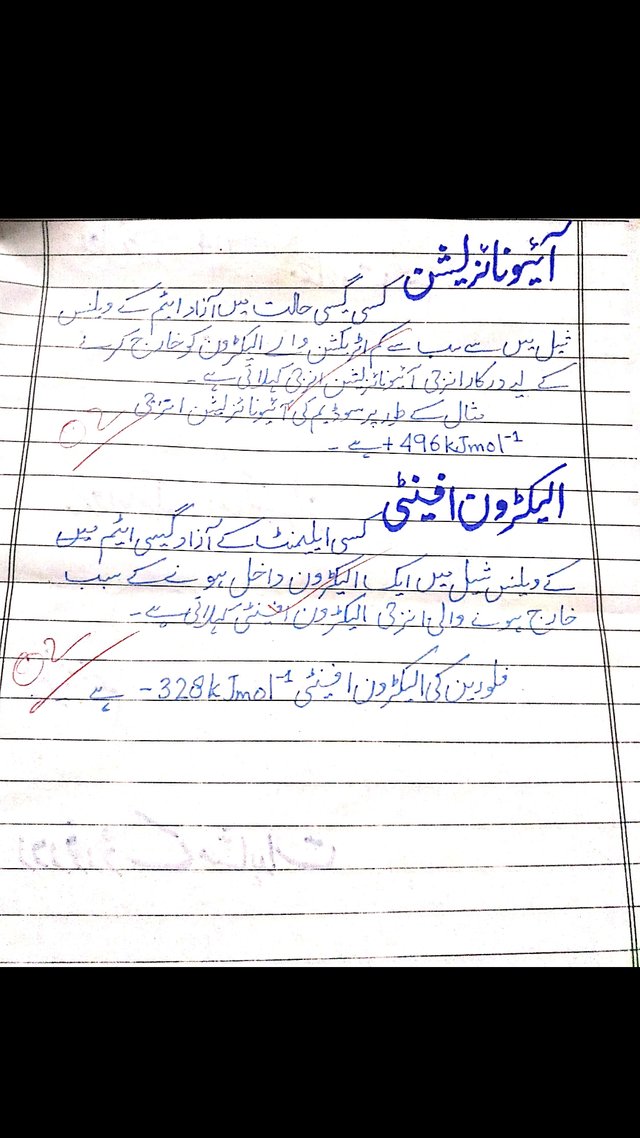 آئیونائزیشن
کسی گیسی حالت میں آزاد ایٹم کے ویلنس
شیل میں سے سب سے کم اٹریکشن والے الیکٹرون کو خارج کرنے
کے لیے درکار انرجی آئیونائزیشن انرجی کہلاتی ہے۔
مثال کے طور پر سوڈیم کی آئیونائزیشن انرجی
+496kJmol⁻¹ ہے۔
الیکٹرون افینٹی
کسی ایلیمنٹ کے آزاد گیسی ایٹم میں
کے ویلنس شیل میں ایک الیکٹرون داخل ہونے کے سبب
خارج ہونے والی انرجی الیکٹرون افینٹی کہلاتی ہے۔
فلورین کی الیکٹرون افینٹی -328kJmol⁻¹ ہے